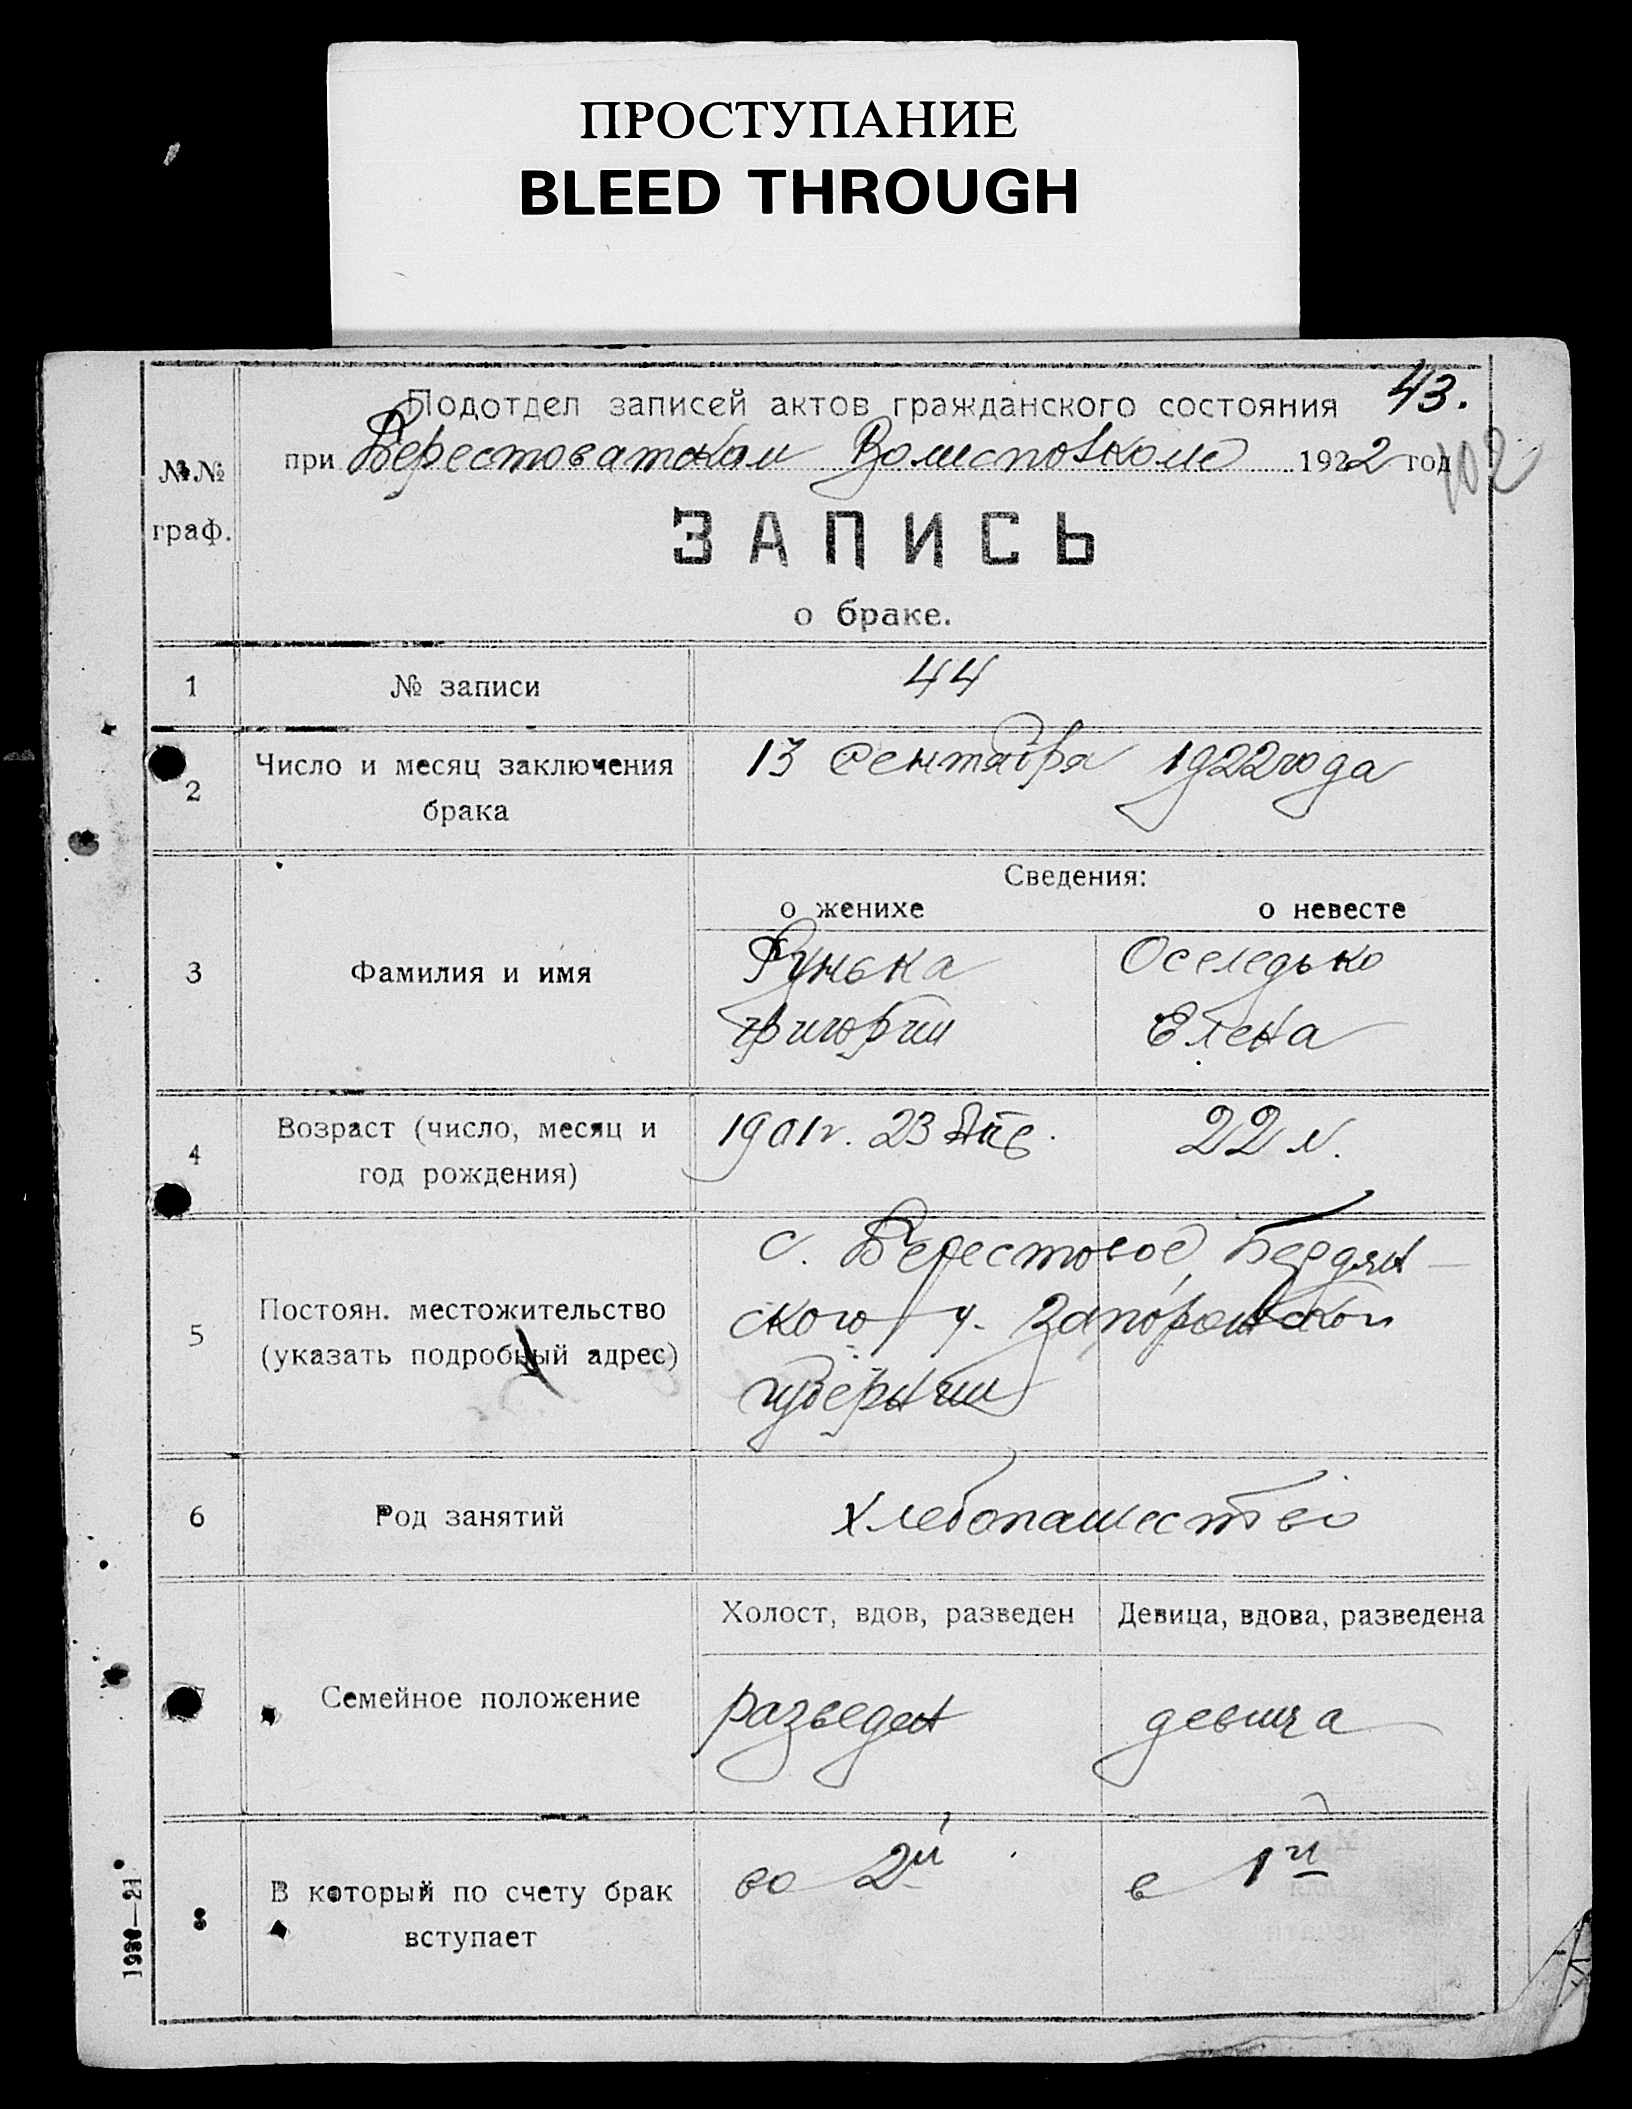 ПРОСТУПАНИЕ
BLEED THROUGH
43.
Подотдел записей актов гражданского состояния
при Берестоватском Волисполкоме 1922 год
102
№№
граф.
ЗАПИСЬ
о браке.
1 № записи 44
2 Число и месяц заключения брака 13 Сентября 1922 года
Сведения:
о женихе о невесте
3 Фамилия и имя Рунька Оселедько
Григорий Елена
4 Возраст (число, месяц и год рождения) 1901 г. 23 22 л.
5 Постоян. местожительство (указать подробный адрес) с. Берестовое Бердян-
ского у. Запорожской
губернии
6 Род занятий Хлебопашество
Холост, вдов, разведен Девица, вдова, разведена
7 Семейное положение разведен девица
8 В который по счету брак вступает во 2й в 1й